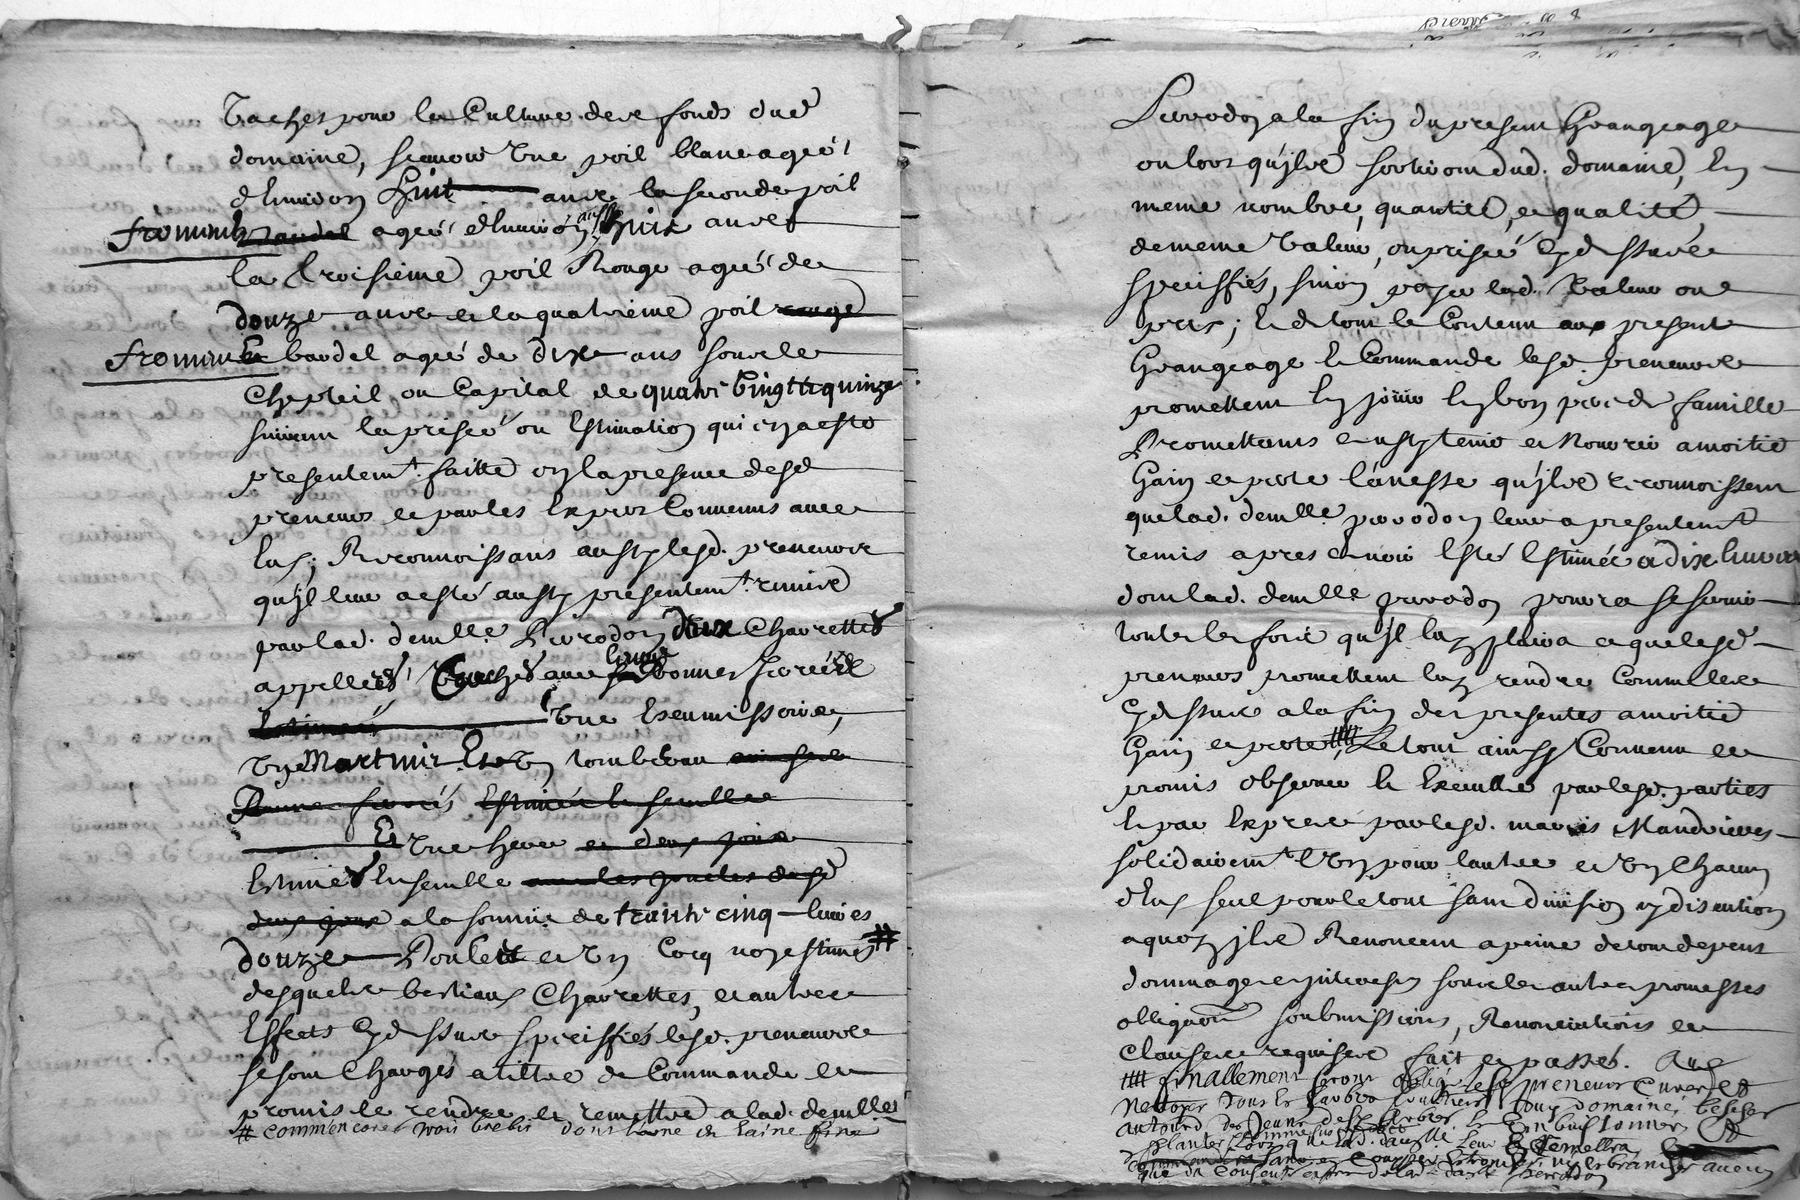 Vaches pour la Culture de ce fonds dud
domaine, scavoir Une poil blanc agée
d'environ huit ans la seconde poil
froment agée d'environ aussy huit années
la troisieme poil Rouge agée de
douze années et la quatrieme poil rouge
froment bardel agée de dix ans sous le
Chepteil ou Capital de quatre Vingt quinze
suivant la prisée ou Estimation qui en a esté
presentemt. faitte en la presence desd
preneurs et par les Expers Convenus avec
Eux; Reconnoissans aussy lesd. preneurs
qu'jl leur a esté aussy presentemt. remis
par lad. demlle. Perrodon deux Charrettes
appellées Vaches avec leurs bonnes
Estimées Une
Un Martinir Et Un tombereau
bonnes Estimés Ensemble
Et Une herse et deux jouse
Estimés Ensemble
deux jous a la somme de trante cinq livres
douze Poulett et Un Cocq non estimés #
desquels bestiaux Charrettes, et autres
Effects Cy dessus speciffiés lesd. preneurs
se sont Chargés a tiltre de Commande et
promis de rendre et remettre a lad. demlle
# commencores trois brebis dont laine en laine fine
Perrodon a la fin du present Grangeage
ou lors qu'jls sortiront dud. domaine, En
meme nombre, quantité, et qualité
de meme Valeur, ou prisée Cy dessus
speciffiés, sinon payer lad. Valeur ou
prix; Et de tout le Contenu aux present
Grangeage Et Commande lesd. preneurs
promettent En jouir En bon pere de famille
Promettans aussy tenir et Nourrir a moitié
Gain et perte l'anesse qu'jls reconnoissent
que lad. demlle. perrodon leur a presentemt
remis apres avoir Esté Estimée a dix livres
dont lad. demlle perrodon pourra se servir
toutes les fois qu'jl luy plaira et que lesd
preneurs promettent luy rendre Comme les
Cy dessus a la fin des presentes a moitié
Gain et perte, #### Le tout ainssy Convenu et
promis observer Et Executter par lesd. parties
Et par Exprès par lesd. mariés Mandrieres
solidairemt. l'Un pour l'autre et Un Chacun
d'Eux seul pour le tout sans division ny discution
a quoy jls Renoncent a peine de tous depens
dommages et jnterests sous les autres promesses
obligaons soubmissions, Renonciations et
Clauses requises fait et passés. Aud
#### finallement seront obligés lesd preneurs curer et
Nettoyer Tous les Arbres fruittiers Dud domaine, bescher
autourd des Jeunes Arbres Et En buissonner
planter Lors que lad. damlle. leur
sans couper Et troncer ny Ebrancher aucun
que du consentement de lad damlle Perrodon